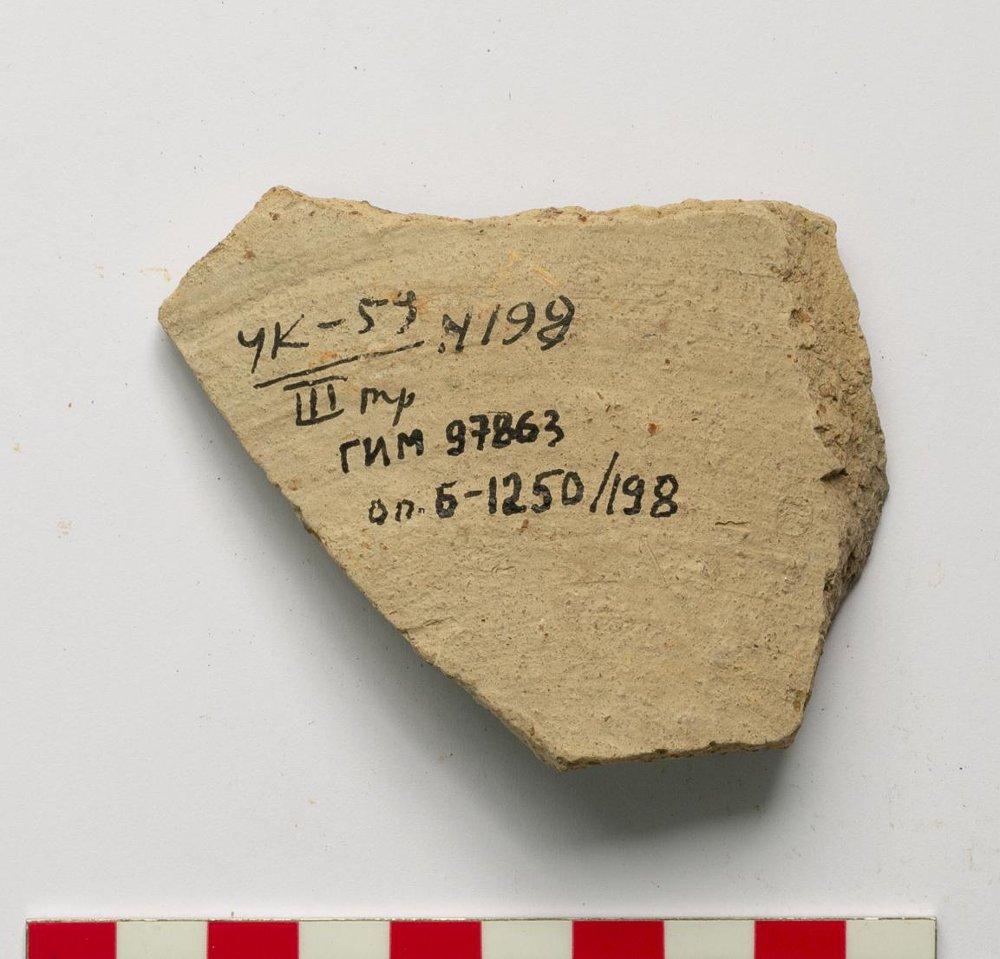 УК-59 N198
III тр
ГИМ 97863
оп. Б-1250/198